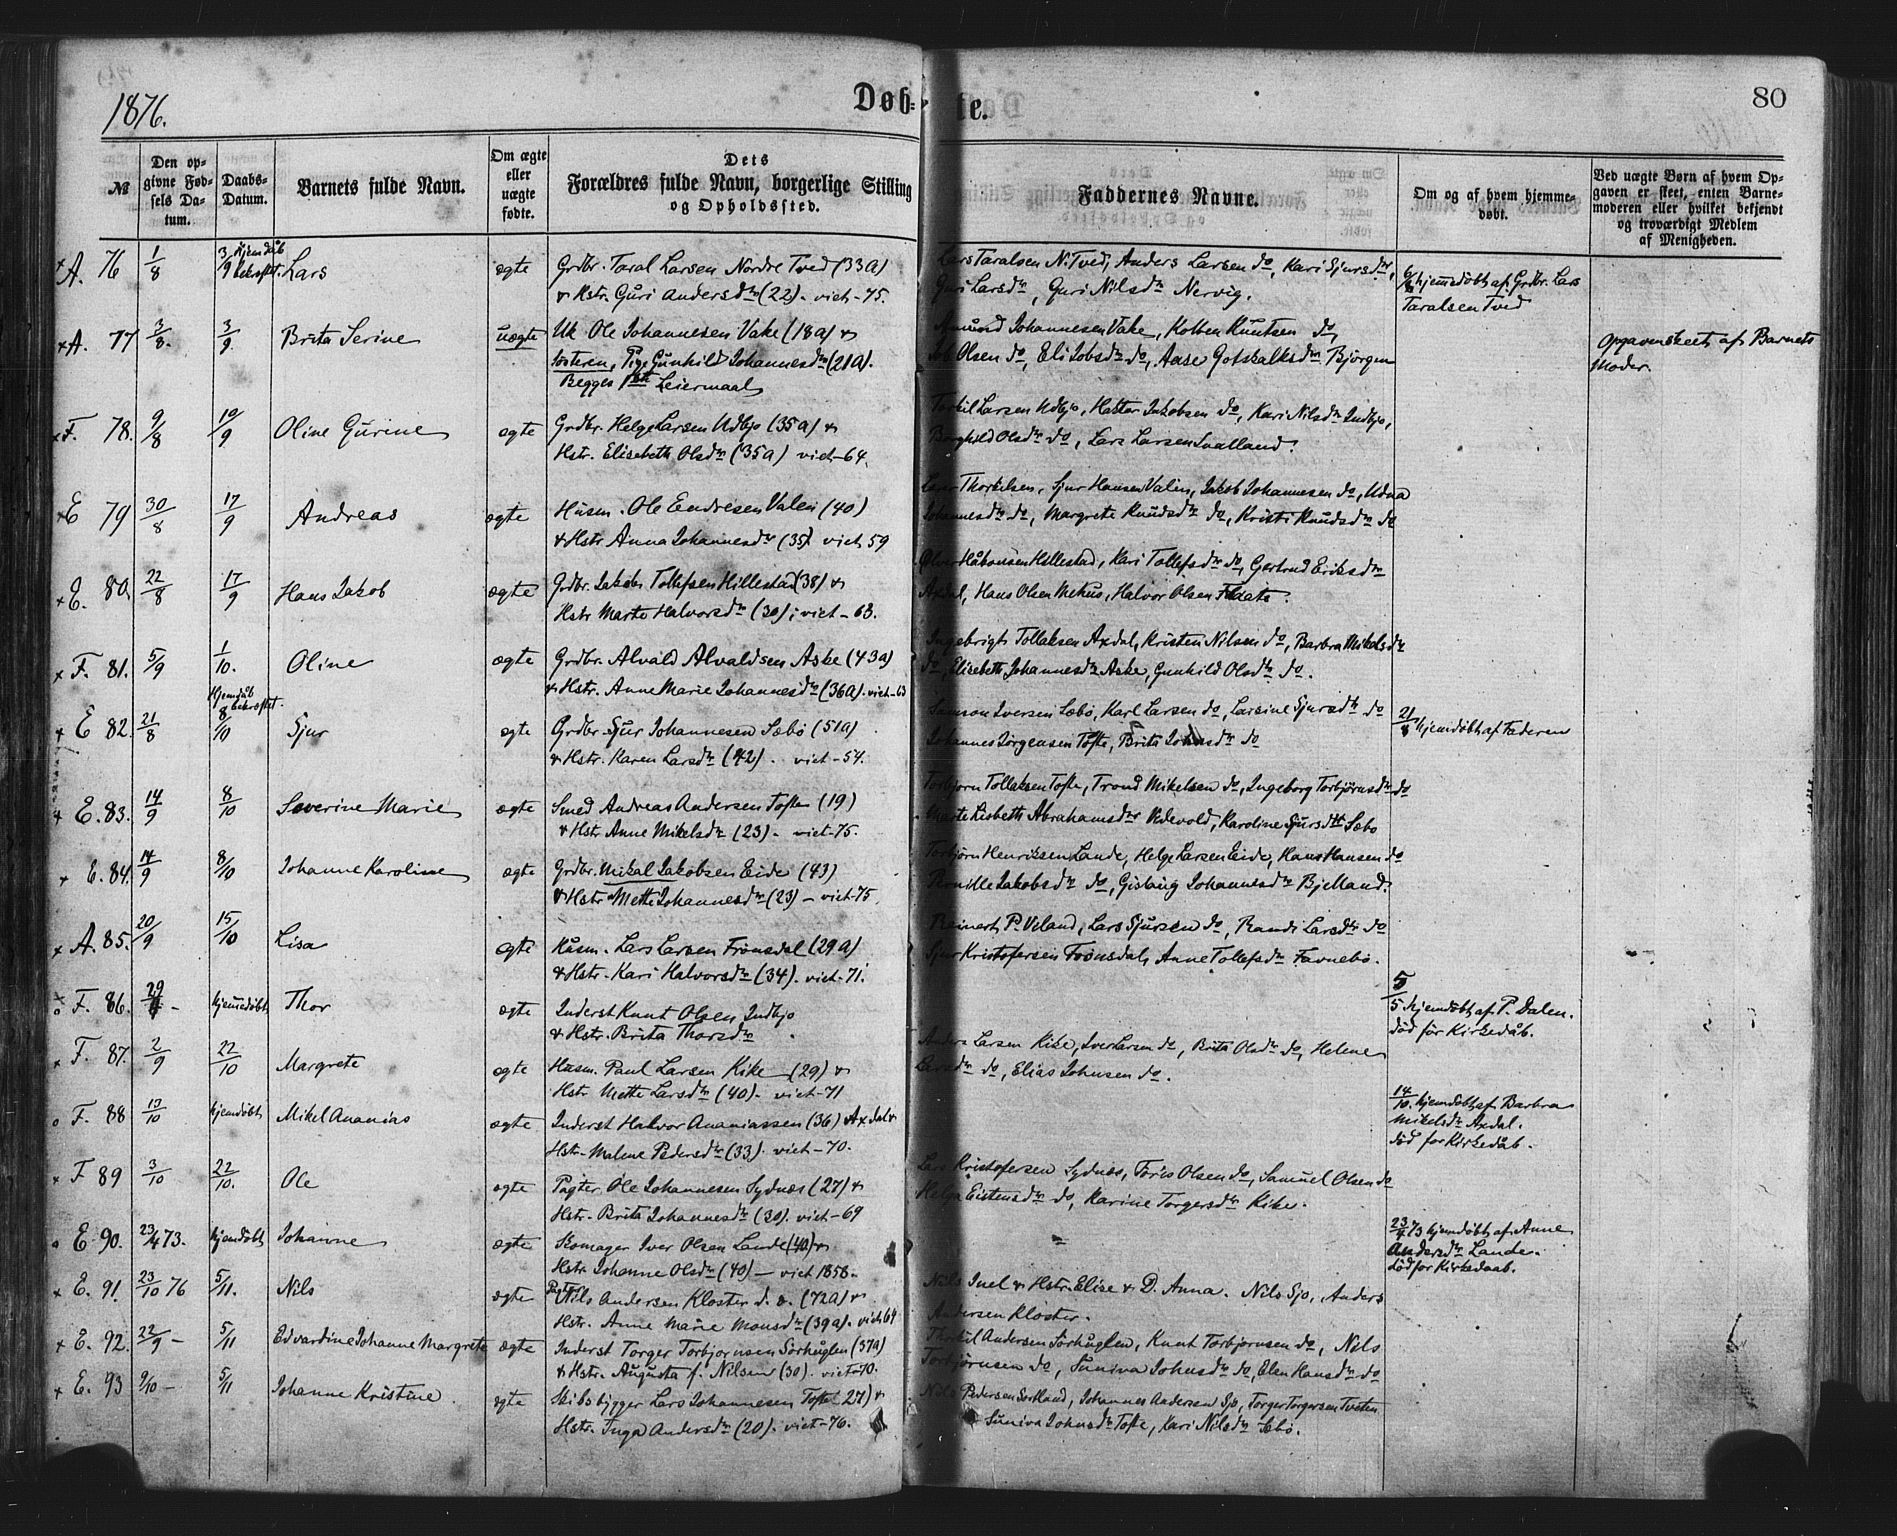 1876.
Døb=
te.
80
№
Den op-
givne Fød-
sels Da-
tum.
Daabs-
Datum.
Barnets fulde Navn.
Om ægte
eller
uægte
fødte.
Dets
Forældres fulde Navn, borgerlige Stilling
og Opholdssted.
Faddernes Navne.
Om og af hvem hjemme-
døbt.
Ved uægte Børn af hvem Op-
gaven er skeet, enten Barne-
moderen eller hvilket bekjendt
og troværdigt Medlem
af Menigheden.
A. 76 1/8 3/9 Hjemdåb bekræftet. Lars ægte Grdbr. Taral Larsen Nordre Tved (33a)
& Hstr. Guri Andersdtr (22). viet-75.
Lars Taralsen N. Tved, Anders Larsen do, Kari Sjursdtr,
Guri Larsdtr, Guri Nilsdtr Nervig.
hjemdøbt af Grdbr. Lars
Taralsen Tved
A. 77 3/8. 3/9. Brita Serine uægte Uk Ole Johannesen Vake (18a) &
søsteren, Pige Gunhild Johannesdtr (21a).
Begges 1ste Leiermaal
Amund Johannesen Vake, Kolben Knutsen do,
Job Olsen do, Eli Jobsdtr do, Aase Gotskalksdtr Bjørgen
Opgaven skeet af Barnets
Moder.
F. 78. 9/8 10/9 Oline Gurine ægte Grdbr. Helge Larsen Udbjo (35a) &
Hstr. Elisebeth Olsdtr (35a) viet-64.
Torkil Larsen Udbjo, Jakobsen do, Kari Nilsdtr Indbjo,
Borghild Olsdtr do, Lars Larsen Svalland.
E 79 30/8 17/9 Andreas ægte Husm. Ole Endresen Valen (40)
& Hstr Anna Johannesdtr (35) viet 59
Lars Thorkilsen, Sjur Hansen Valen, Jakob Johannesen do, Udna
Johannesdtr do, Margrete Knudsdtr do, Kristi Knudsdtr do
E. 80. 22/8 17/9 Hans Jakob ægte Grdbr. Jakob Tollefsen Hillestad (38) &
Hstr Marte Halvorsdtr (30); viet-63.
Håkonsen Hillestad, Kari Tollefsdtr do, Gertrud Eriksdtr
Axdal, Hans Olsen Mehus, Halvor Olsen Flaate.
F. 81. 5/9 1/10. Oline ægte Grdbr. Alvald Alvaldsen Aske (43a)
& Hstr. Anne Marie Johannesdtr (36a). viet-63
Ingebrigt Tollaksen Axdal, Kristen Nilsen do, Barbra Mikelsdtr
do, Elisebeth Johannesdtr Aske, Gunhild Olsdtr do.
E 82. 21/8 Hjemdåb bekræftet. 8/10 Sjur ægte Grdbr Sjur Johannesen Sæbø (51a)
& Hstr. Karen Larsdtr (42). viet-54.
Samson Iversen Sæbø, Karl Larsen do, Larsine Sjursdtr do
Johannes Jørgensen Tofte, Brita Johnsdtr do
21/8 hjemdøbt af Faderen
E. 83. 14/9 8/10 Severine Marie ægte Smed Andreas Andersen Tofte (19)
& Hstr. Anne Mikelsdtr (23). viet-75.
Torbjørn Tollaksen Tofte, Trond Mikelsen do, Ingeborg Torbjørnsdtr do
Marte Lisbeth Abrahamsdtr Vedevold, Karoline Sjursdtr Sæbø
E. 84. 14/9 8/10 Johanne Karoline ægte Grdbr. Mikal Jakobsen Eide (43)
& Hstr Mette Johannesdtr (23) - viet-75.
Torbjørn Henriksen Lande, Helge Larsen Eide, Hans Hansen do
Pernille Jakobsdtr do, Gislaug Johannesdtr Bjelland.
A. 85. 20/9 15/10 Lisa ægte Husm. Lars Larsen Frønsdal (29a)
& Hstr. Kari Halvorsdtr (34). viet-71.
Reinert P. Viland, Lars Sjursen do, Randi Larsdtr do
Sjur Kristofersen Frønsdal, Anne Tollefsdtr Favnebø.
F. 86. 29/4 - hjemmedøbt Thor ægte Inderst Knut Olsen Indbjo
& Hstr. Brita Thorsdtr
5/5 hjemdøbt af P. Dalen.
død før Kirkedåb.
F. 87. 2/9 22/10 Margrete ægte Husm. Paul Larsen Kike (29) &
Hstr Mette Larsdtr (40). viet-71
Anders Larsen Kike, Iver Larsen do, Brita Olsdtr do, Helene
Larsdtr do, Elias Johnsen do.
F. 88 13/10 hjemdøbt Mikel Ananias ægte Inderst Halvor Ananiassen (36) Axdal &
Hstr. Malene Pedersdtr (33). viet-70.
14/10. hjemdøbt af Barbra
Mikelsdtr Axdal.
død før Kirkedåb.
F 89 3/10 22/10. Ole ægte Pagter Ole Johannesen Sydnæs (27) &
Hstr. Brita Johannesdtr (30). viet-69
Lars Kristofersen Sydnæs, Tøris Olsen do, Samuel Olsen do
Helga Eistensdtr do, Karine Torgersdtr Kike.
E 90. 23/4 73. hjemdøbt Johanne ægte Skomager Iver Olsen Lande (40) &
Hstr Johanne Olsdtr (40) - viet 1858.
23/4 73 hjemdøbt af Anne
Andersdtr Lande.
død før Kirkedaab.
E. 91. 23/10 76 5/11. Nils ægte Pagt. Nils Andersen Kloster d. a. (72a) &
Hstr. Anne Marie Monsdtr (39a). viet 64
Nils Juel & Hstr Elise & D. Anna. Nils Sjo, Anders
Andersen Kloster.
E. 92. 22/9 - 5/11 Edvardine Johanne Margrete ægte Inderst Torger Torbjørnsen Sørhuglen (37a)
& Hstr. Augusta f. Nilsen (30). viet-70.
Thorkil Andersen Sørhuglen, Knut Torbjørnsen do, Nils
Torbjørnsen do, Suniva Johnsdtr do, Elen Hansdtr do
E. 93 9/10 - 5/11 Johanne Kristine ægte Skibsbygger Lars Johannesen Tofte 27) &
Hstr. Inga Andersdtr (20). viet-76.
Nils Pedersen Sortland, Johannes Andersen Sjo, Torger Torgersen Tveten
Suniva Johnsdtr Tofte, Kari Nilsdtr Sæbø.